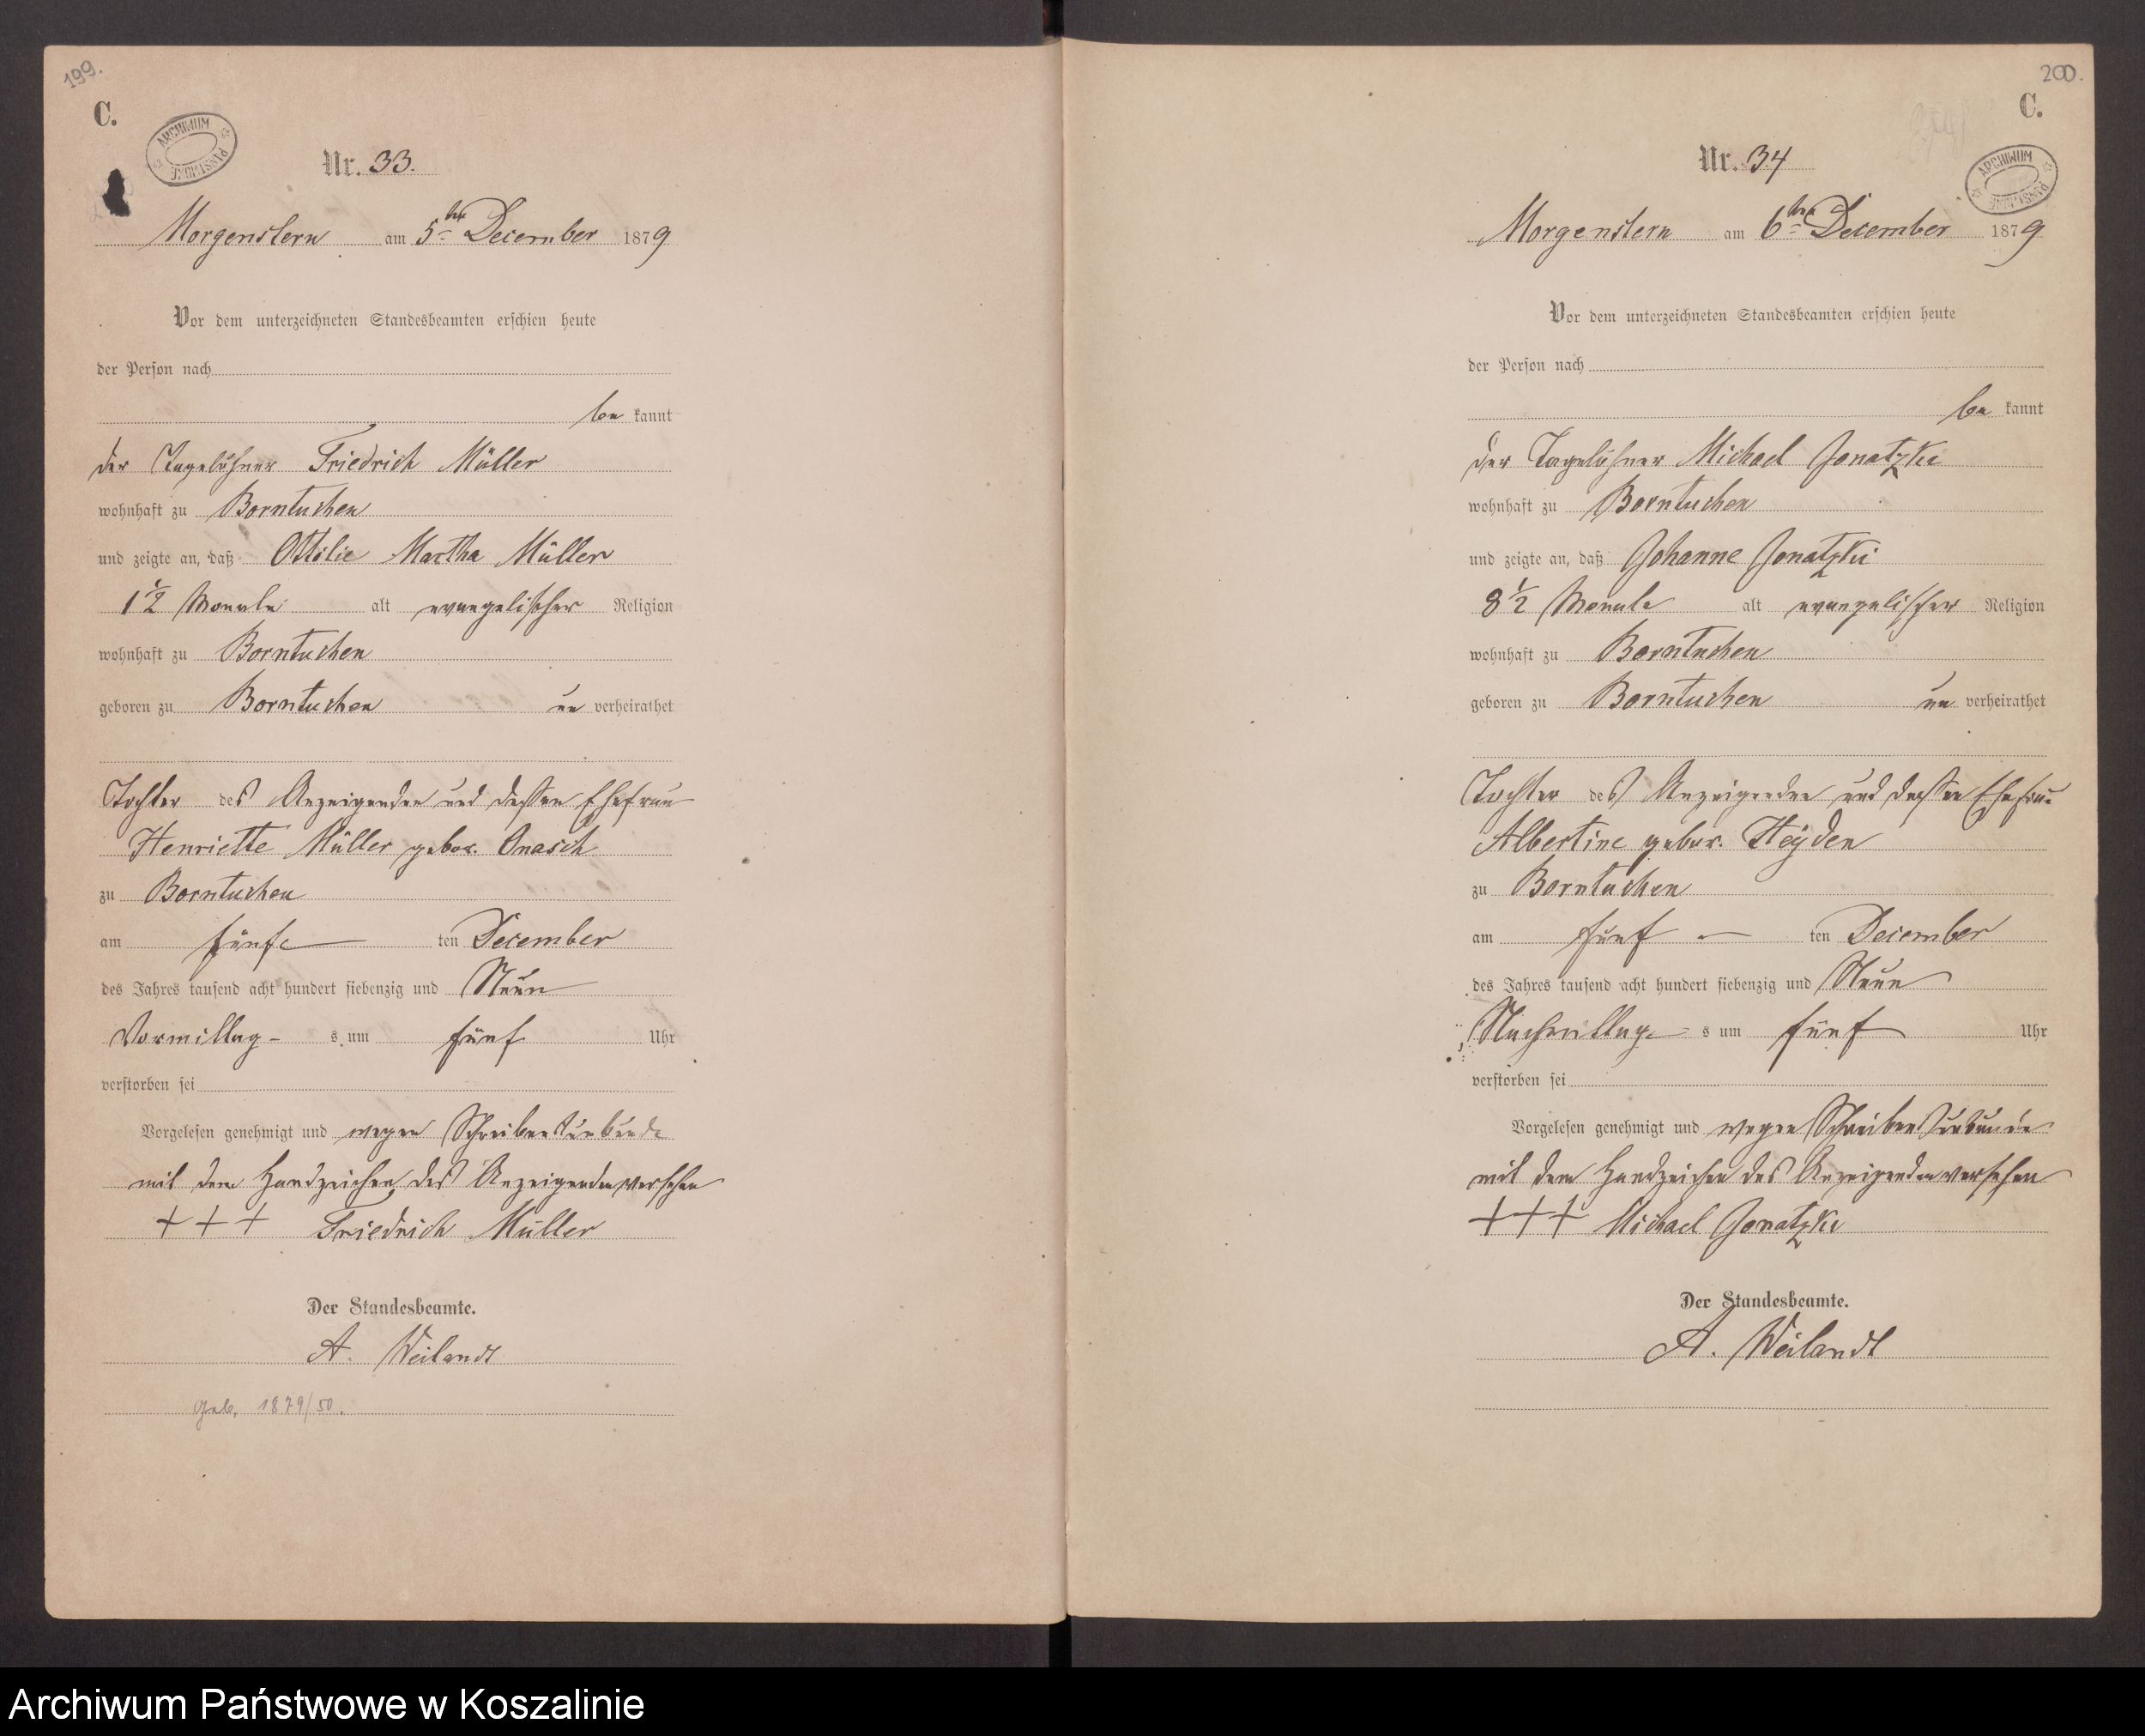 199.
C.
ARCHIWUM PAŃSTWOWE
Nr. 33.
Morgenstern am 5ten December 1879
Vor dem unterzeichneten Standesbeamten erschien heute
der Person nach
be kannt
der Tagelöhner Friedrich Müller
wohnhaft zu Borntuchen
und zeigte an, daß Ottilie Martha Müller
1 1/2 Monate alt evangelischer Religion
wohnhaft zu Borntuchen
geboren zu Borntuchen un verheirathet
Tochter des Anzeigenden und dessen Ehefrau
Henriette Müller gebor. Onasch
zu Borntuchen
am fünf ten December
des Jahres tausend acht hundert siebenzig und Neun
Vormittag s um fünf Uhr
verstorben sei
Vorgelesen genehmigt und wegen Schreibensunkunde
mit dem Handzeichen des Anzeigenden versehen
+ + + Friedrich Müller
Der Standesbeamte.
A. Weilandt
Geb. 1879/50.
200.
C.
ARCHIWUM PAŃSTWOWE
Nr. 34
Morgenstern am 6ten December 1879
Vor dem unterzeichneten Standesbeamten erschien heute
der Person nach
be kannt
der Tagelöhner Michael Jonatzki
wohnhaft zu Borntuchen
und zeigte an, daß Johanne Jonatzki
8 1/2 Monate alt evangelischer Religion
wohnhaft zu Borntuchen
geboren zu Borntuchen un verheirathet
Tochter des Anzeigenden und dessen Ehefrau
Albertine gebor. Heyden
zu Borntuchen
am fünf ten December
des Jahres tausend acht hundert siebenzig und Neun
Nachmittag s um fünf Uhr
verstorben sei
Vorgelesen genehmigt und wegen Schreibensunkunde
mit dem Handzeichen des Anzeigenden versehen
+ + + Michael Jonatzki
Der Standesbeamte.
A. Weilandt
Archiwum Państwowe w Koszalinie